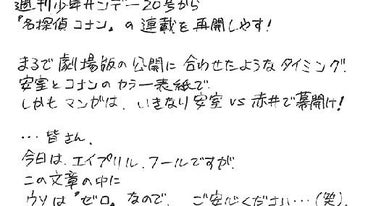 週刊少年サンデー20号から
『名探偵コナン』の連載を再開しやす!
まるで劇場版の公開に合わせたようなタイミング。
安室とコナンのカラー表紙で
しかもマンガは、いきなり安室vs赤井で幕開け!
…皆さん、
今日は、エイプリル、フールですが、
この文章の中に
ウソは『ゼロ』なので、ご安心ください…(笑)。